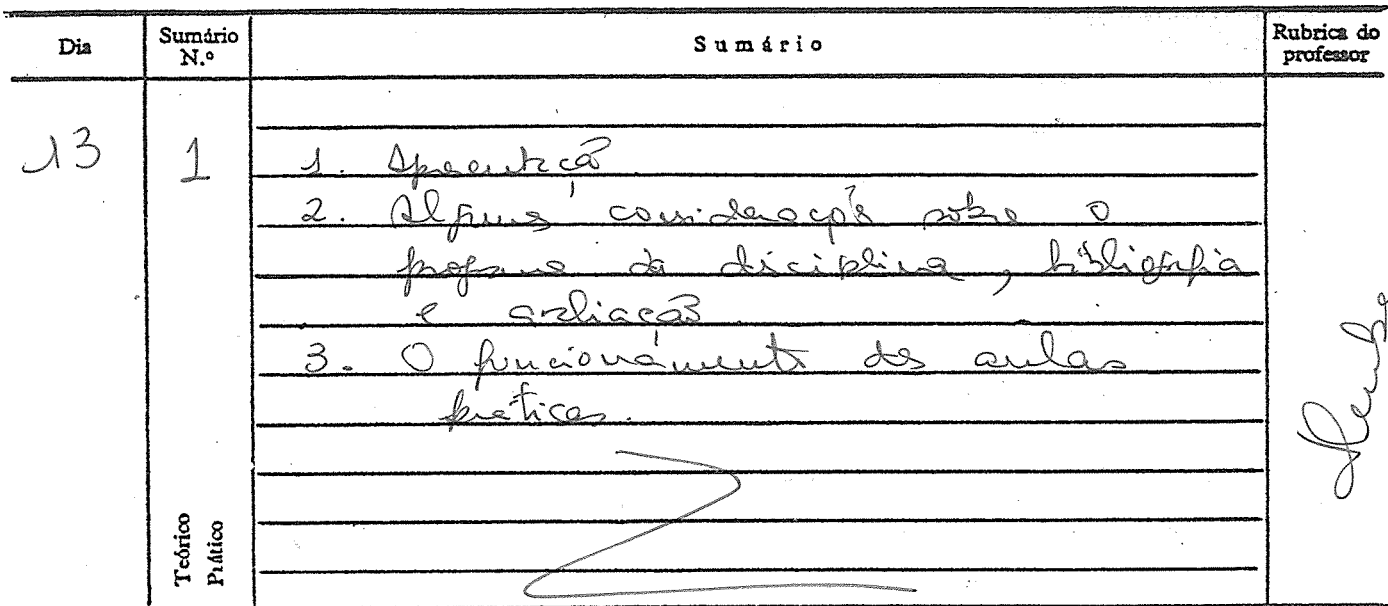 Dia
Sumário N.º
Sumário
Rubrica do professor
13
1
1. Apresentação
2. Algumas considerações sobre o
programa da disciplina, bibliografia
e avaliação
3. O funcionamento das aulas
práticas.
Teórico
Prático